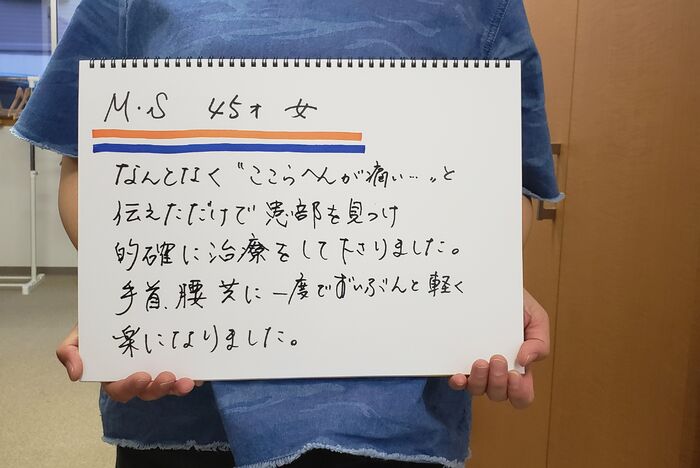 M・S 45才 女
なんとなく"ここらへんが痛い…"と
伝えただけで患部を見つけ
的確に治療をして下さりました。
手首、腰共に一度でずいぶんと軽く
楽になりました。